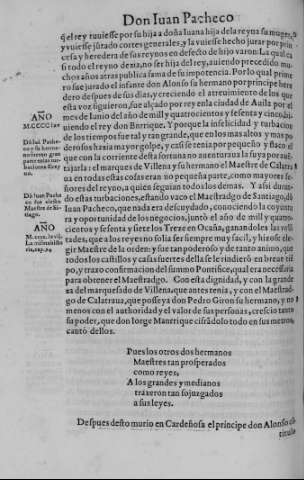 Don Iuan Pacheco
q̃ el rey tuuiesse por su hija a doña Iuana hija de la reyna su muger,
y vuiesse jũtado cortes generales, y la vuiesse hecho jurar por prin
cesa y heredera de sus reynos en defecto de hijo varon. La qual ca
si todo el reyno dezia, no ser hija del rey, auiendo precedido mu
chos años atras publica fama de su impotencia. Por lo qual prime
ro fue jurado el infante don Alonso su hermano por principe here
dero despues de sus dias, y creciendo el atreuimiento de los que
esta voz siguieron, fue alçado por rey en la ciudad de Auila por el
mes de Iunio del año de mill y quatrocientos y sesenta y cinco, bi
uiendo el rey don Henrique. Y porque la infelicidad y turbacion
de los tiempos fue tal y tan grande, que en los mas altos y mas po
derosos hazia mayor golpe, y casi se tenia por pequeño y flaco el
que con la corriente desta fortuna no auenturaua la suya por aue
zajarla: el marques de Villena y su hermano el Maestre de Calatra
ua en todas estas cosas eran no pequeña parte, como mayores se
ñores del reyno, a quien seguian todo los demas. Y assi duran
do estas turbaciones, estando vaco el Maestradgo de Santiago, dõ
Iuan Pacheco, que nada era descuydado, conociendo la coyuntu
ra y oportunidad de los negocios, juntò el año de mill y quatro
cientos y sesenta y siete los Treze en Ocaña, ganandoles las vo
tades, que a los reyes no solia ser siempre muy facil, y hizose ele
gir Maestre de la orden: y fue tan poderoso y de tanto animo, que
todos los castillos y casas fuertes della se le rindierõ en breue tiẽ
po, y traxo confirmacion del summo Pontifice, qual era necessaria
para obtener el Maestradgo. Con esta dignidad, y con la grande
za del marquesado de Villena, que antes tenia, y con el Maestrad
go de Calatraua, que posseya don Pedro Giron su hermano, y no
menos con el authoridad y el valor de sus personas, crescio tanto
su poder, que don Iorge Manrrique cifrãdolo todo en sus metros,
cantò dellos.
AÑO
M.CCCC.lxv
AÑO
Pues los otros dos hermanos
Maestres tan prosperados
como reyes,
A los grandes y medianos
traxeron tan sojuzgados
a sus leyes.
Despues desto murio en Cardeñosa el principe don Alonso cũ
titulo